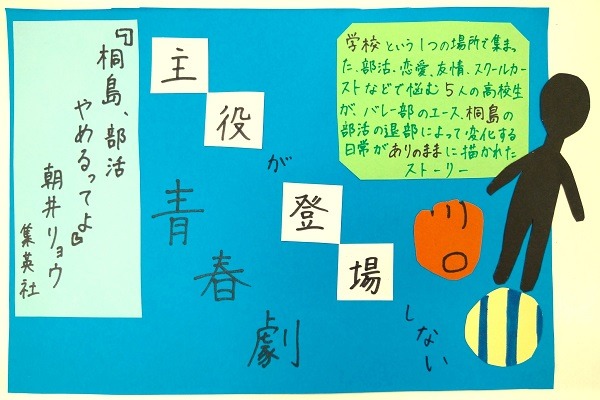 『桐島、部活
やめるってよ』
朝井リョウ
集英社
主役
が
登場
しない
青春劇
学校という1つの場所で集まっ
た、部活、恋愛、友情、スクールカー
ストなどで悩む5人の高校生
が、バレー部のエース、桐島の
部活の退部によって変化する
日常がありのままに描かれた
ストーリー